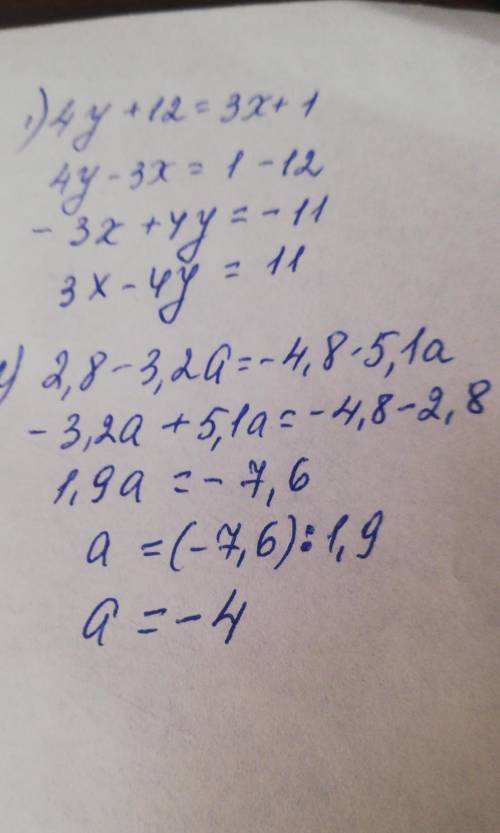 1) 4y + 12 = 3x + 1
4y - 3x = 1 - 12
- 3x + 4y = - 11
3x - 4y = 11
2,8 - 3,2a = - 4,8 - 5,1a
- 3,2a + 5,1a = - 4,8 - 2,8
1,9a = - 7,6
a = (- 7,6) : 1,9
a = - 4